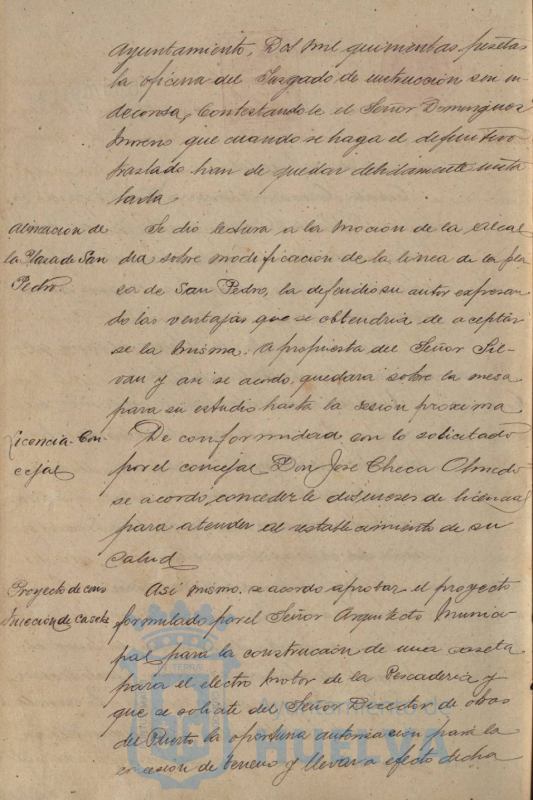 Ayuntamiento, Dos mil quinientas pesetas
la oficina del Juzgado de instrucción sin in-
decorosa, Contestandole el Señor Dominguez
Moreno que cuando se haga el definitivo
traslado han de quedar debidamente insta
lada
Alineación de
la Plaza de San
Pedro.
Se dio lectura a la moción de la Alcal
dia sobre modificación de la linea de la pla
za de San Pedro, la defendio su autor expresan
do las ventajas que se obtendria de aceptar
se la misma. A propuesta del Señor Sil-
van y asi se acordo, quedara sobre la mesa
para su estudio hasta la sesión proxima
Licencia Con-
cejal
De conformidad con lo solicitado
por el concejal Don José Checa Olmedo
se acordo, concederle dos meses de licencia
para atender al restablecimiento de su
salud
Proyecto de cons
trucción de caseta
Así mismo, se acordo aprobar el proyecto
formulado por el Señor Arquitecto Munici
pal para la construcción de una caseta
para el electro motor de la Pescaderia y
que se solicite del Señor Director de obras
del Puerto la oportuna autorización para la
ocasión de terreno y llevar a efecto dicha
HUELVA